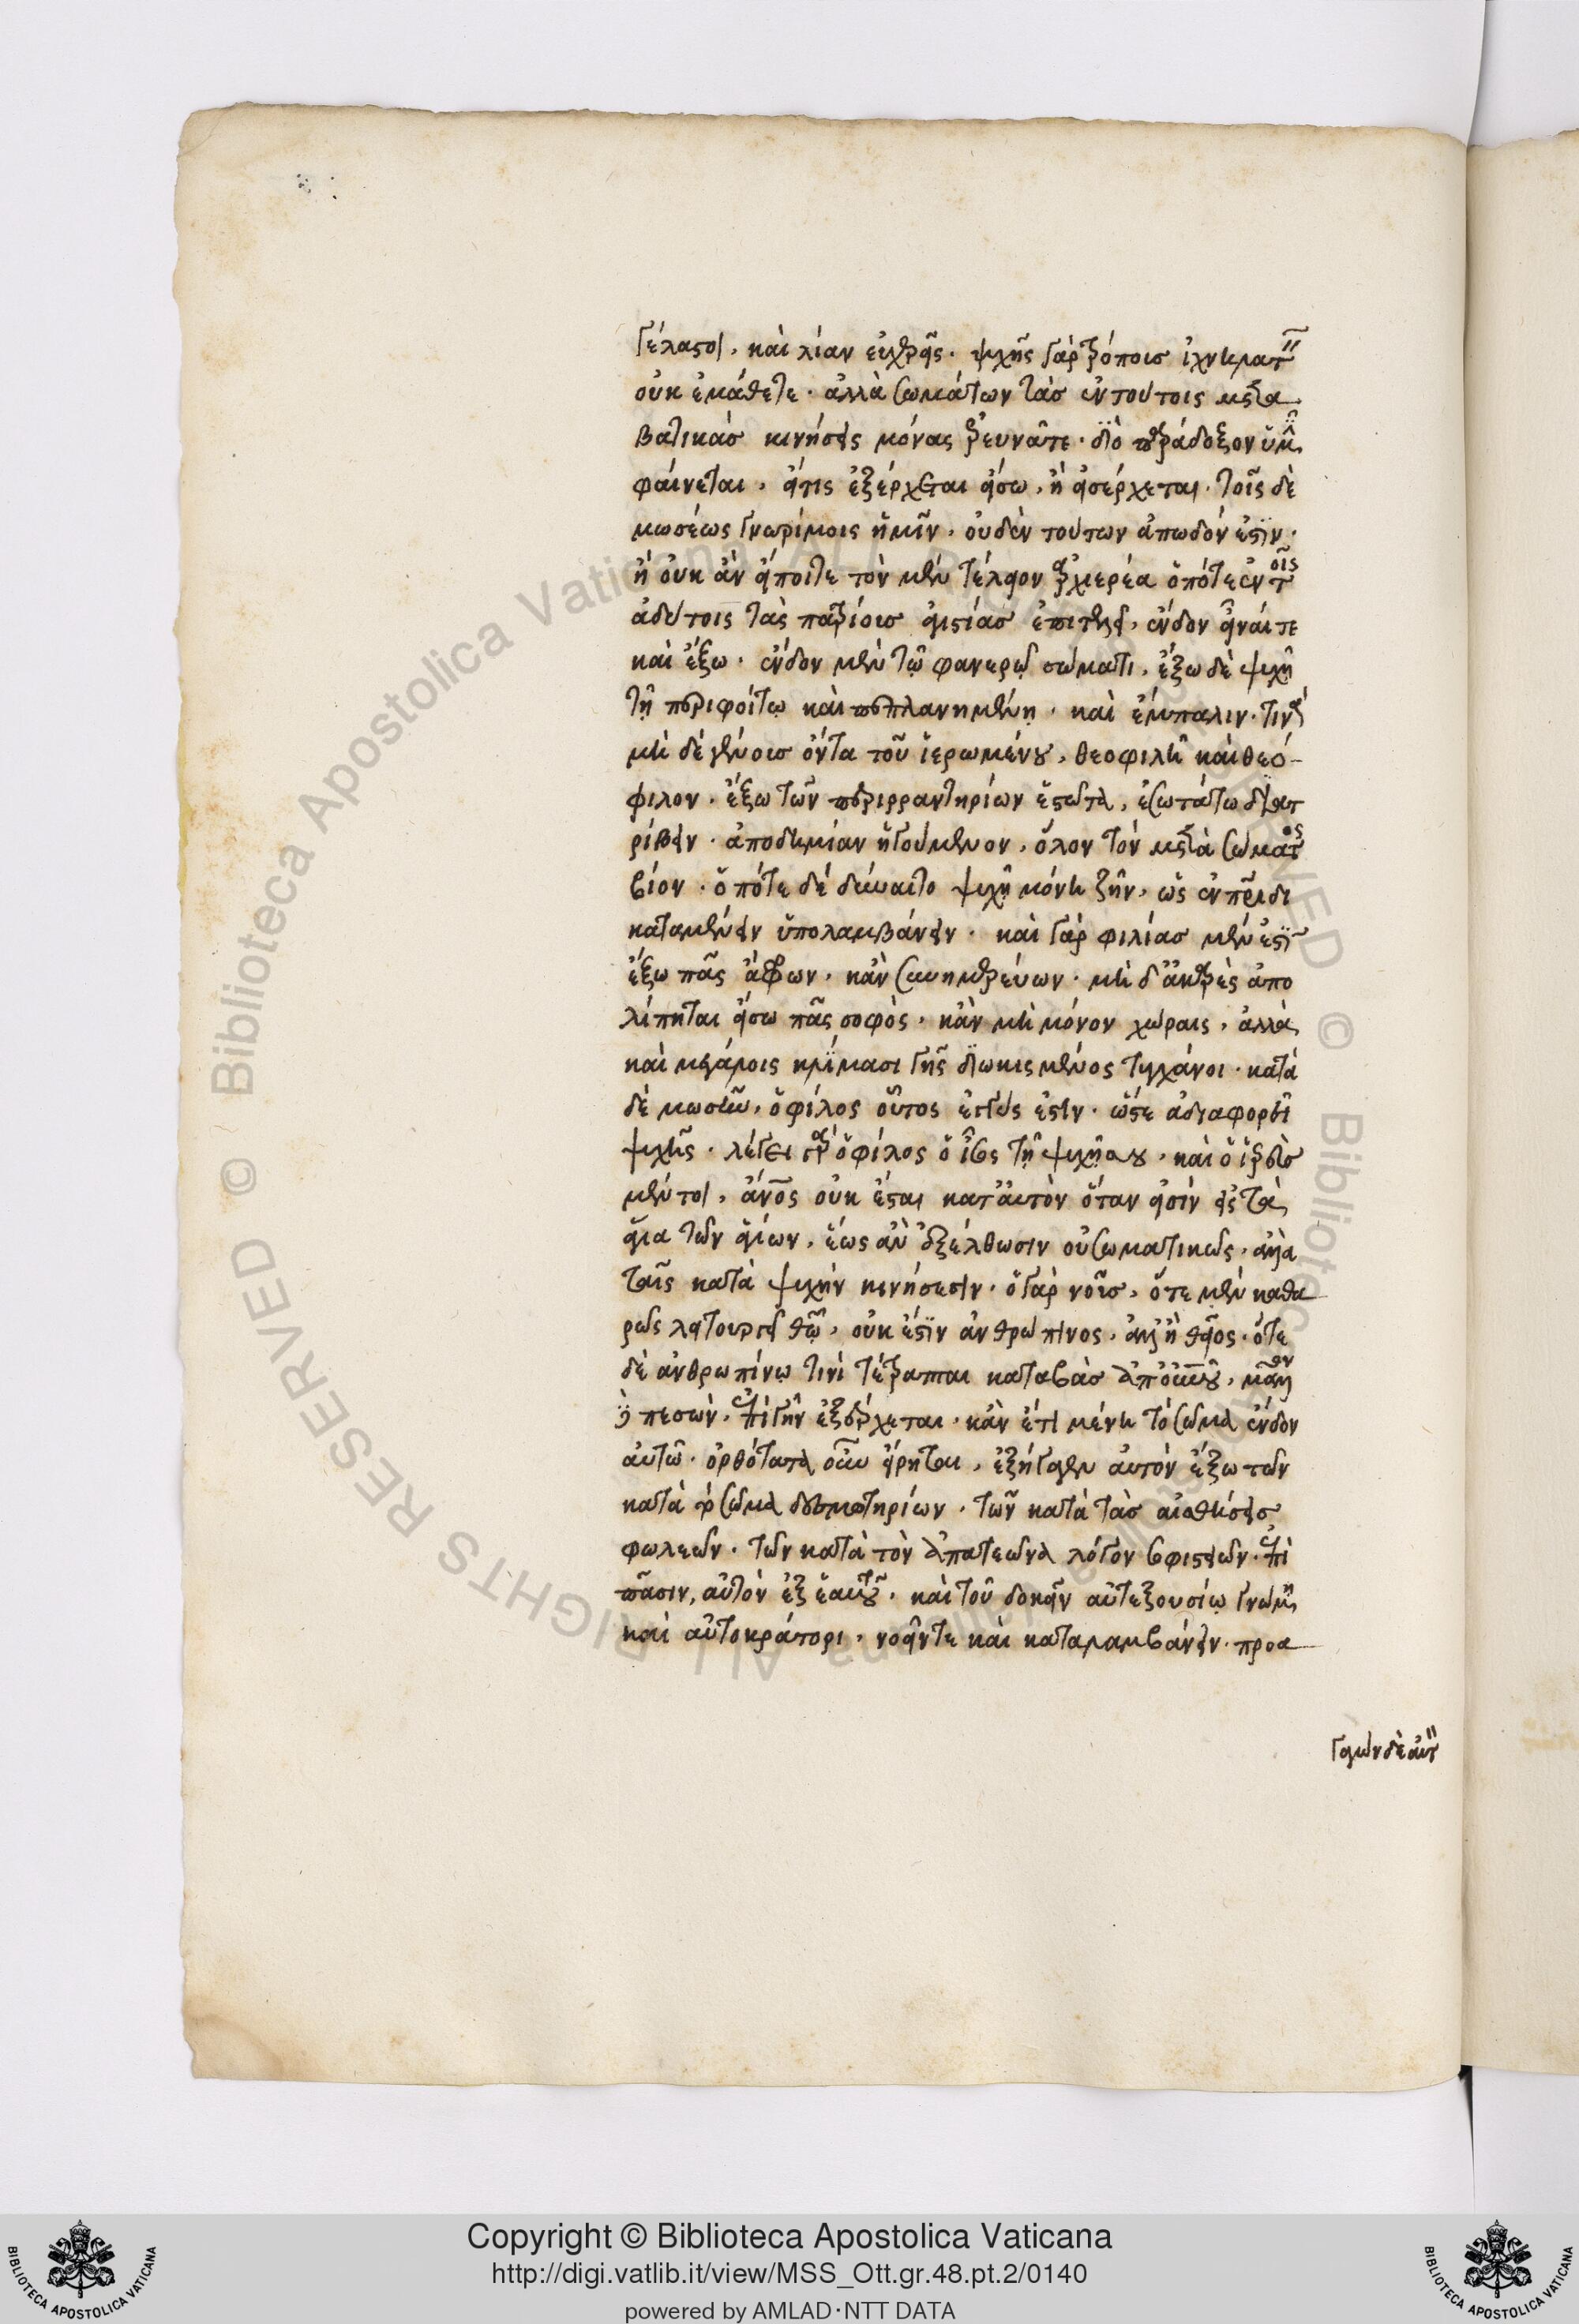 γέλαστοι, καὶ λίαν εὐχερεῖς. ψυχῆς γὰρ τρόποις ἰχνηλατεῖν
οὐκ ἐμάθετε. ἀλλὰ σωμάτων τὰς ἐν τούτοις μετα
βατικὰς κινήσεις μόνας ἐρευνᾶτε. διὸ παράδοξον ὑμῖν
φαίνεται, εἴ τις ἐξέρχεται εἴσω, ἢ εἰσέρχεται. τοῖς δὲ
μωσέως γνωρίμοις ἡμῖν, οὐδὲν τούτων ἀπωδόν ἐστιν.
ἢ οὐκ ἂν εἴποιτε τὸν μὲν τέλειον ἀρχιερέα ὁπότε ἐν τοῖς
ἀδύτοις τὰς πατρίους ἁγιστίας ἐπιτελεῖ, ἔνδον εἶναί τε
καὶ ἔξω. ἔνδον μὲν τῷ φανερῷ σώματι, ἔξω δὲ ψυχῇ
τῇ περιφοίτῳ καὶ πεπλανημένῃ. καὶ ἔμπαλιν. τινὰ
μὴ δὲ γένους ὄντα τοῦ ἱερωμένου, θεοφιλῆ καὶ θεό-
φιλον. ἔξω τῶν περιρραντηρίων ἑστῶτα, ἐσωτάτω διατ
ρίβειν. ἀποδημίαν ἡγούμενον, ὅλον τὸν μετὰ σώματος
βίον. ὁπότε δὲ δύναιτο ψυχῇ μόνῃ ζῆν, ὡς ἐν πατρίδι
καταμένειν ὑπολαμβάνειν. καὶ γὰρ φιλίας μέν ἐστιν
ἔξω πᾶς ἄφρων, κἂν συνημερεύων. μὴ δ' ἀκαρὲς ἀπο
λίπηται εἴσω πᾶς σοφὸς, κἂν μὴ μόνον χώραις, ἀλλὰ
καὶ μεγάλοις κλίμασι γῆς διωκισμένος τυγχάνοι. κατὰ
δὲ μωσῆν, ὁ φίλος οὗτος ἐγγύς ἐστιν. ὥστε ἀδιαφορεῖ
ψυχῆς. λέγει γὰρ ὁ φίλος ὁ ἴσος τῇ ψυχῇ σου. καὶ ὁ ἱερεὺς
μέντοι, ἄνος οὐκ ἔσται κατ' αὐτὸν ὅταν εἰσίῃ εἰς τὰ
ἅγια τῶν ἁγίων, ἕως ἂν ἐξέλθωσιν οὐ σωματικῶς. ἀλλὰ
ταῖς κατὰ ψυχὴν κινήσεσιν. ὁ γὰρ νοῦς, ὅτε μὲν καθα
ρῶς λειτουργεῖ θῷ, οὐκ ἔστιν ἀνθρώπινος, ἀλλ' ἢ θεῖος. ὅτε
δὲ ἀνθρωπίνῳ τινὶ τέτραπται καταβὰς ἀπ' οὐνοῦ, μᾶλλον
δὲ πεσὼν. ἐπὶ γῆν ἐξέρχεται. κἂν ἔτι μένῃ τὸ σῶμα ἔνδον
αὐτῷ. ὀρθότατα οὖν εἴρηται, ἐξήγαγεν αὐτὸν ἔξω τῶν
κατὰ τὸ σῶμα δεσμωτηρίων. τῶν κατὰ τὰς αἰσθήσεις
φωλεῶν. τῶν κατὰ τὸν ἀπατεῶνα λόγον σοφιστειῶν. ἐπὶ
πᾶσιν, αὐτὸν ἐξ ἑαυτοῦ, καὶ τοῦ δοκεῖν αὐτεξουσίῳ γνώμῃ
καὶ αὐτοκράτορι, νοεῖν τε καὶ καταλαμβάνειν. προα
γαγὼν δὲ αὐτὸν